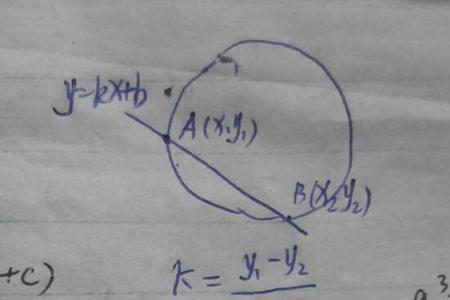 y=kx+b
A(x,y₁)
B(x₂y₂)
+c)
K = y₁-y₂
a³